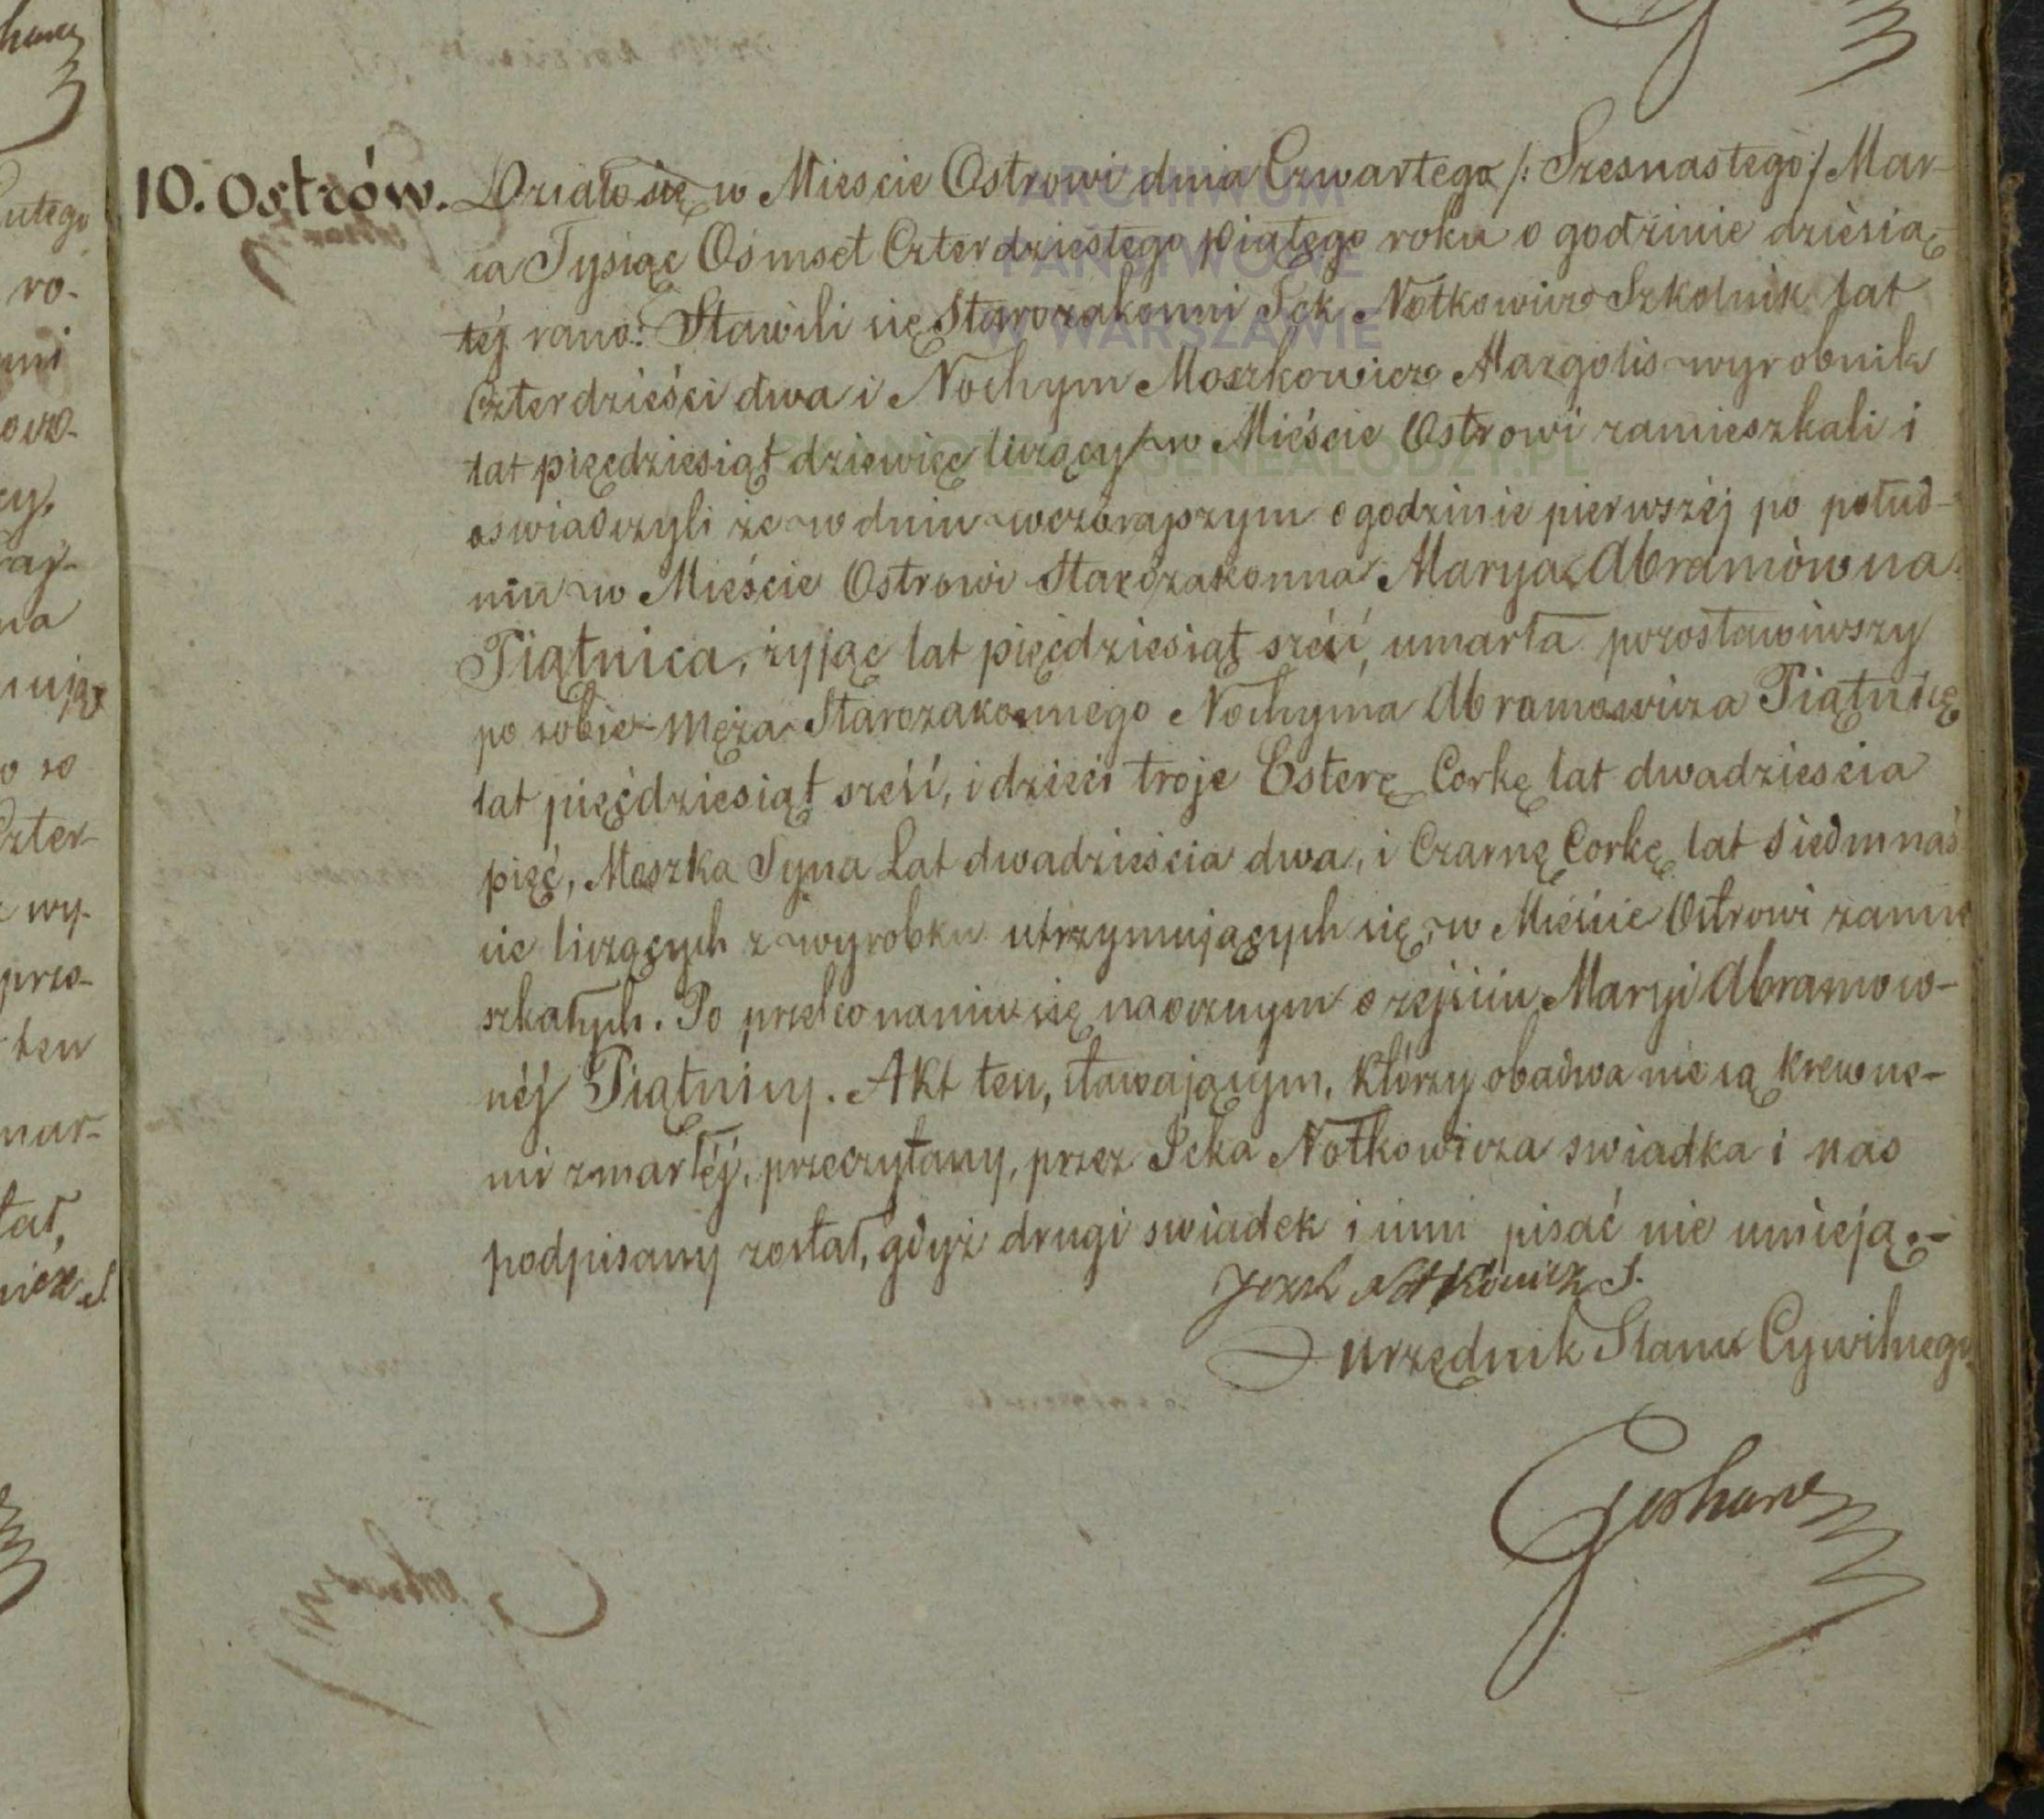 10. Ostrów.
Działo się w Miescie Ostrowi dnia Czwartego /: Szesnastego :/ Mar-
ca Tysiąc Osmset Czterdziestego piątego roku o godzinie dziesią
tej rano. Stawili się Starozakonni Jck Notkowicz Szkolnik lat
Czterdzieści dwa i Nochym Moszkowicz Margolis wyrobnik
lat pięcdziesiąt dziewięc liczący w Mieście Ostrowi zamieszkali i
oswiadczyli że w dniu wczorajszym o godzinie pierwszéj po połud-
niu w Mieście Ostrowi Starozakonna Marya Abramówna
Piątnica, żyjąc lat pięćdziesiąt sześć, umarła pozostawiwszy
po sobie męża Starozakonnego Nochyma Abramowicza Piątnicę
lat pięćdziesiąt sześć, i dzieci troje Esterę Corkę lat dwadziescia
pięć, Moszka Syna Lat dwadzieścia dwa, i Czarnę Corkę lat siedmnaś
cie liczących z wyrobku utrzymujących się, w Mieście Ostrowi zamie
szkałych. Po przekonaniu się naocznym o zejściu Maryi Abramow-
néj Piątnicy. Akt ten, stawającym, którzy obadwa nie są krewne-
mi zmarłéj, przeczytany, przez Jcka Notkowicza swiadka i nas
podpisany został, gdyż drugi swiadek i inni pisać nie umieją.-
Jczek Notkowicz S.
Urzędnik Stanu Cywilnego
ARCHIWUM
PAŃSTWOWE
W WARSZAWIE
GENEALODZY.PL